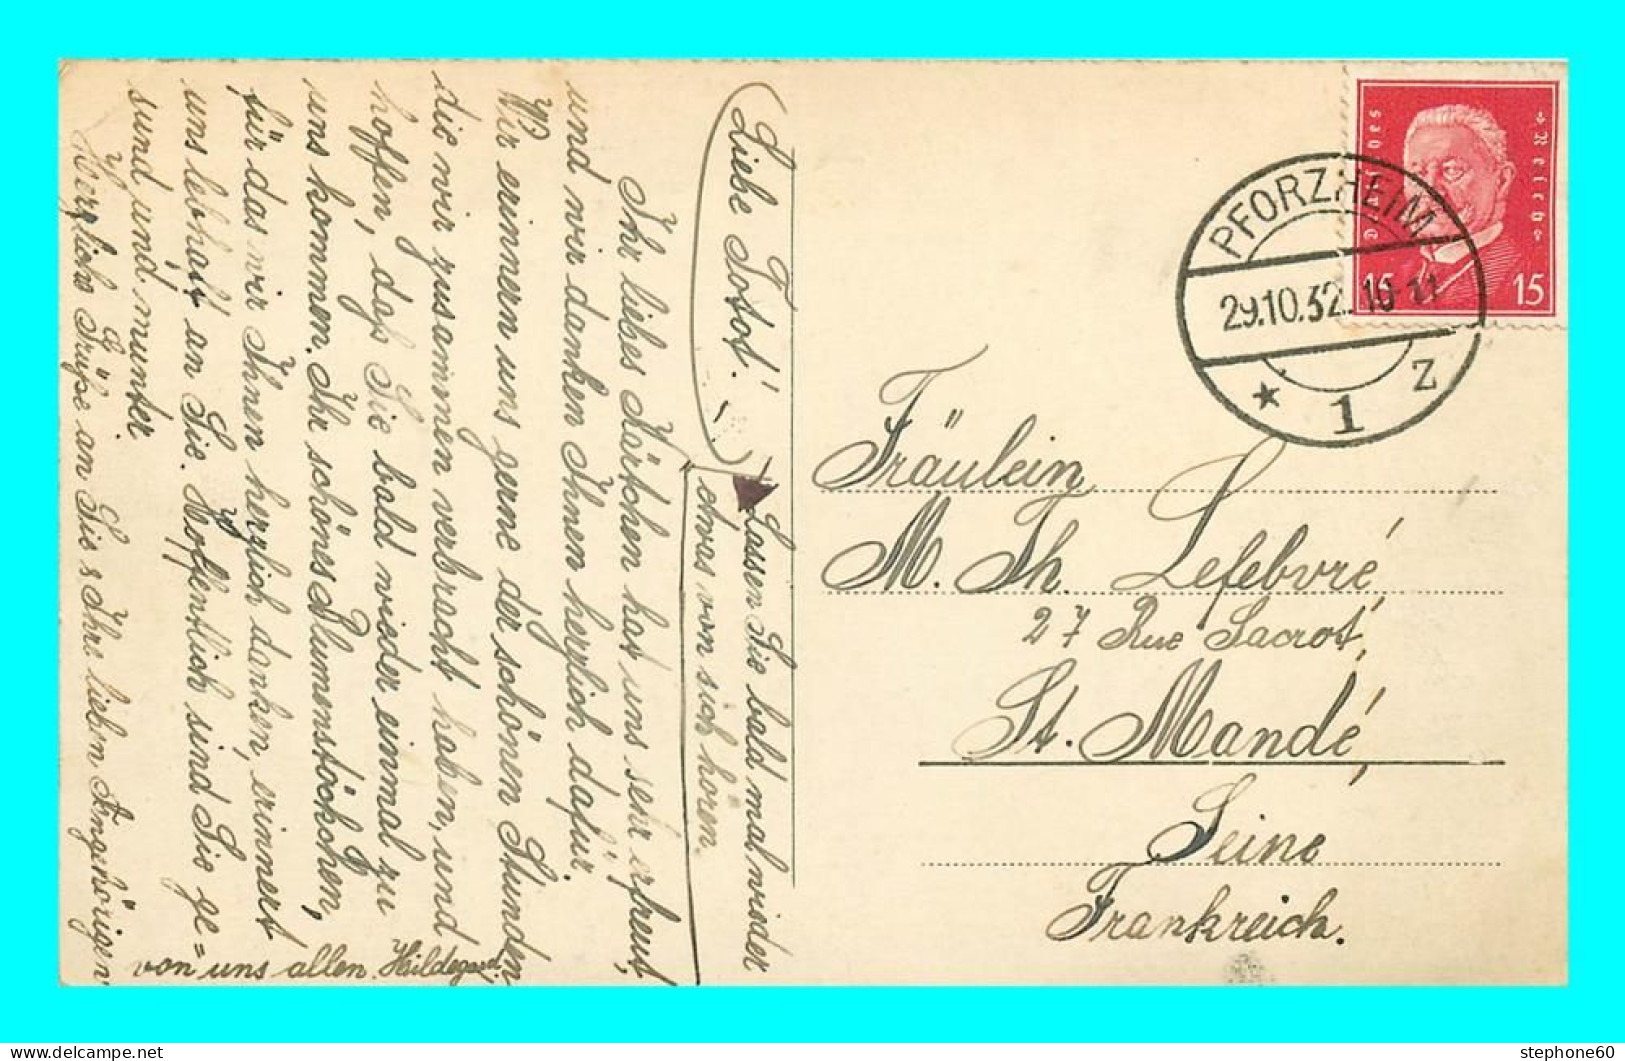 Liebe Totot!
Ihr liebes Kärtchen hat uns sehr erfreut,
und wir danken Ihnen herzlich dafür.
Wir erinnern uns gerne der schönen Stunden,
die wir zusammen verbracht haben, und
hoffen, daß Sie bald wieder einmal zu
uns kommen. Ihr schönes Blumenstöckchen,
für das wir Ihnen herzlich danken, erinnert
uns lebhaft an Sie. Hoffentlich sind Sie ge=
sund und munter.
Herzliche Grüße an Sie & Ihre lieben Angehörigen
von uns allen. Hildegard.
Lassen Sie bald mal wieder
etwas von sich hören.
Deutsches Reich
15 15
PFORZHEIM
29.10.32. 10-11
* 1 z
Fräulein
M. Th. Lefebvré,
27 Rue Sacrot,
St. Mandé,
Seine
Frankreich.
stephone60